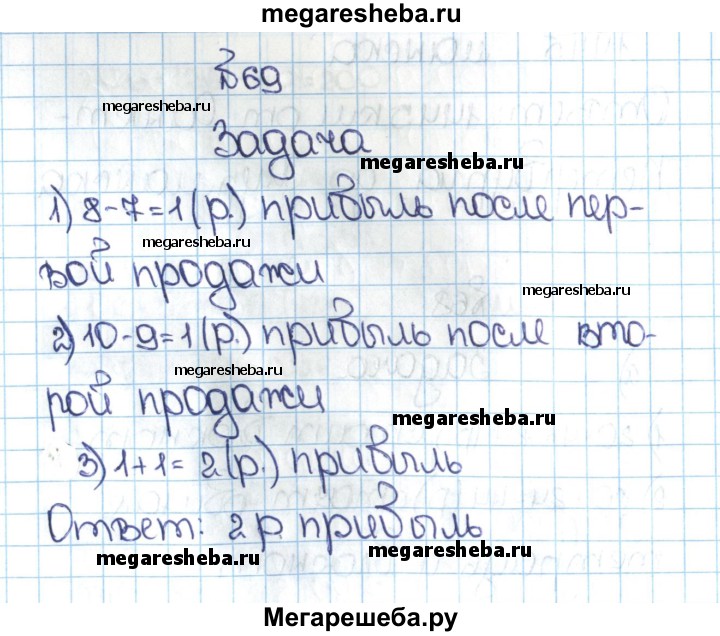 megaresheba.ru
№69
megaresheba.ru
Задача
megaresheba.ru
1) 8-7=1(р.) прибыль после пер-
megaresheba.ru
вой продажи
megaresheba.ru
2) 10-9=1(р.) прибыль после вто-
megaresheba.ru
рой продажи
megaresheba.ru
3) 1+1=2(р.) прибыль
Ответ: 2 р прибыль
megaresheba.ru
megaresheba.ru
Мегарешеба.ру